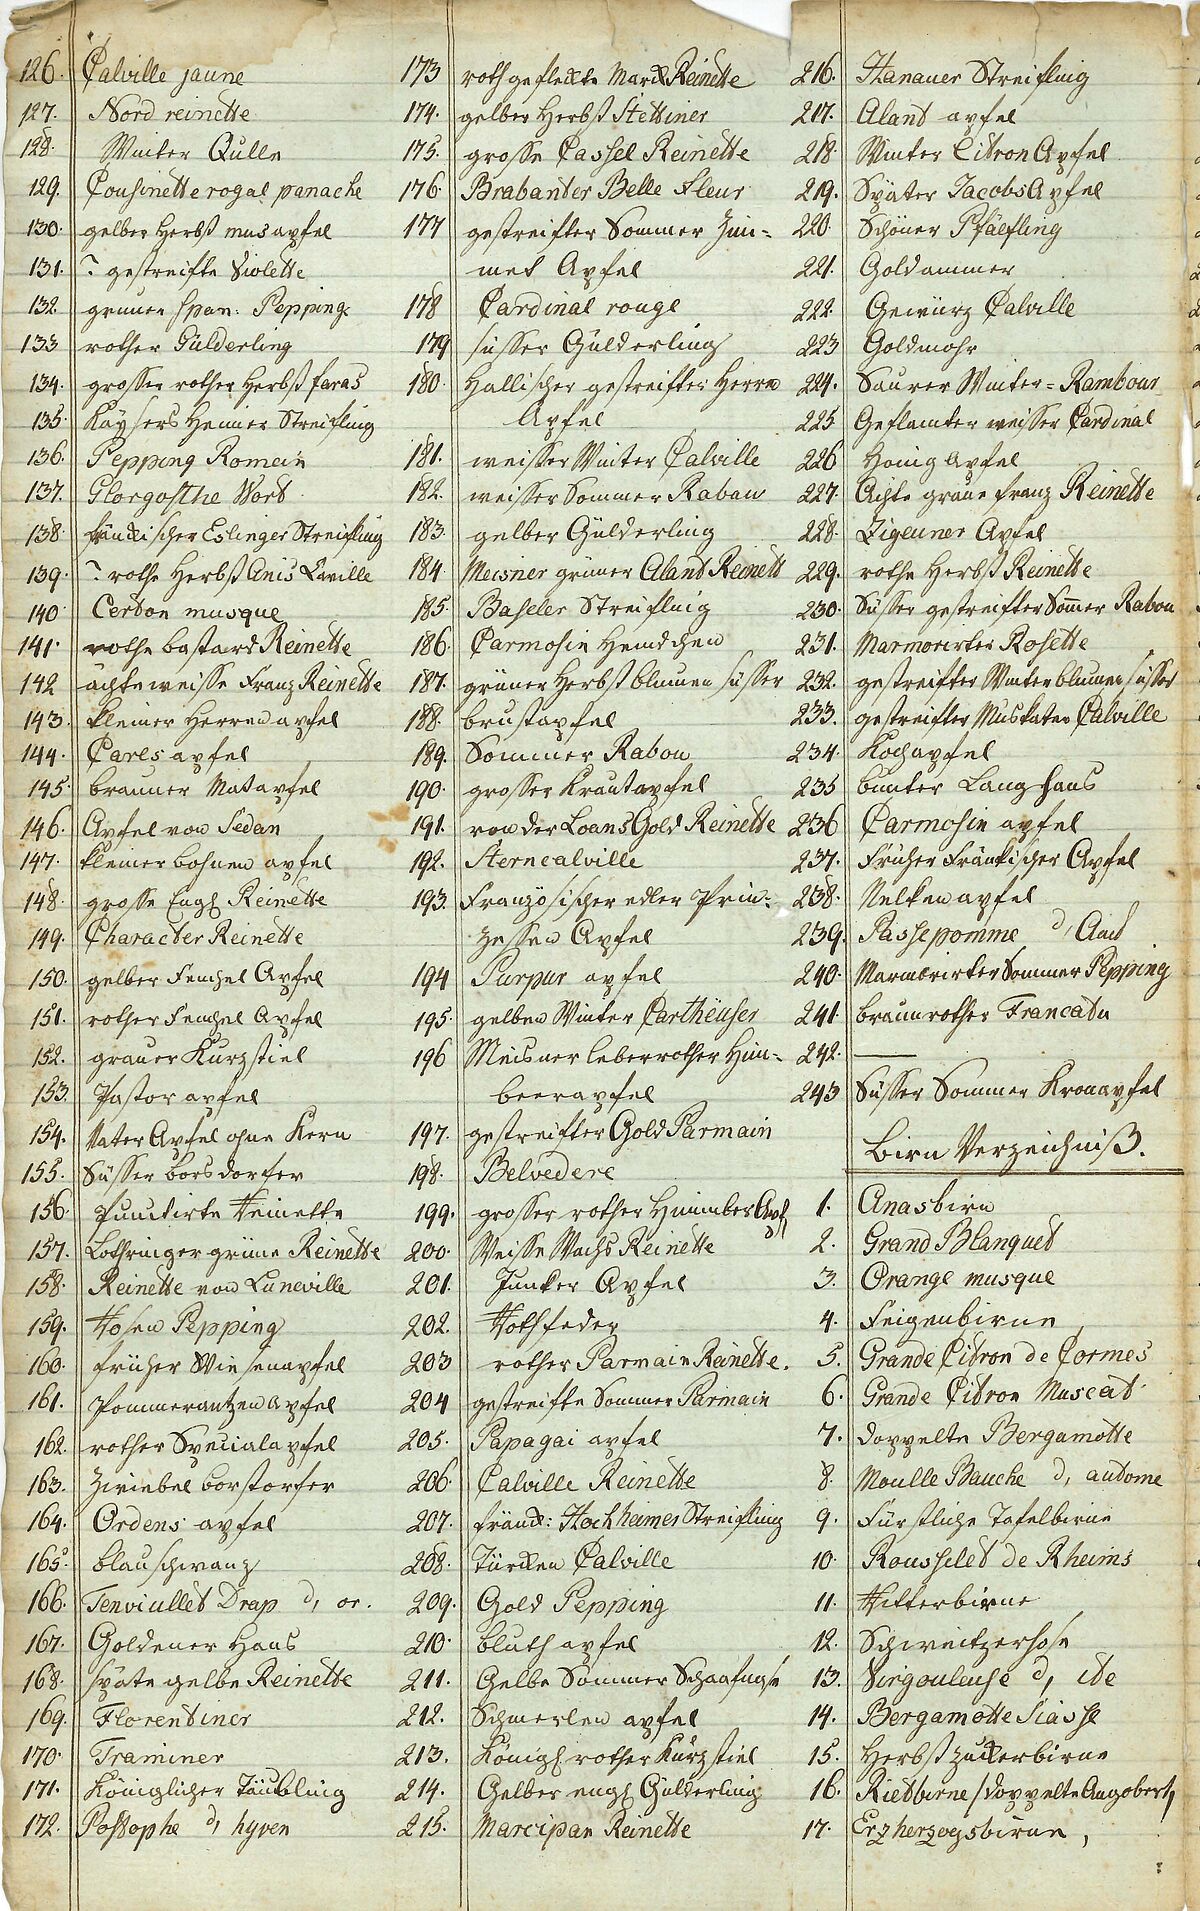 126. Calville jaune
127. Nord reinette
128. Winter Qulle
129. Cousinette rogal panache
130. gelber Herbst mus apfel
131. ? gestreifte Violette
132. grauer span: Pepping
133 rother Gülderling
134. grosser rother Herbst faras
135. Kaysers Heimer Streifling
136. Pepping Romein
137. Glorgosthe Wort
138. fränkischer Eslinger Streifling
139. ? rothe Herbst Anis Caville
140. Certon musque
141. rothe bastard Reinette
142 achte weisse Franz Reinette
143. kleiner Herren apfel
144. Carls apfel
145. brauner Mat apfel
146. Apfel von Sedan
147. kleiner bohnen apfel
148. grosse Engl Reinette
149. Character Reinette
150. gelber Fenchel Apfel
151. rother Fenchel Apfel
152. grauer Kurzstiel
153. Pastor apfel
154. Vater Apfel ohne Kern
155. Süsser borsdorfer
156. Punctirte Reinette
157. Lothringer grüne Reinette
158. Reinette von Luneville
159. Rosen Pepping
160. früher Wiesenapfel
161. Pommerantzen apfel
162. rother Specialapfel
163. Zwiebel borstorfer
164. Ordens apfel
165. blauschwanz
166. Fenviullet Drap d, or.
167. Goldener Hans
168. späte gelbe Reinette
169. Florentiner
170. Traminer
171. Königlicher Täubling
172. Postophe d, hyven
173 roth geflekte Mark Reinette
174. gelber Herbst Stettiner
175. grosse Cassel Reinette
176. Brabanter Belle fleur
177 gestreifter Sommer Zim=
met Apfel
178 Cardinal rouge
179 süsser Gülderling
180. Hallischer gestreifter Herrn
Apfel
181. weisser Winter Calville
182. weisser Sommer Rabau
183. gelber Gülderling
184 Meisner grüner Alant Reinett
185. Baseler Streifling
186. Carmosin Hemdchen
187. grüner Herbst blumen süsser
188. brustapfel
189. Sommer Rabou
190. grosser Krautapfel
191. von der Loans Gold Reinette
192. Sterncalville
193. Französischer edler Prin=
zessen Apfel
194 Purpur apfel
195. gelben Winter Cartheuser
196 Meisner leberrother Him=
beerapfel
197. gestreifter Gold Parmain
198. Belvedere
199. grosser rother Himmber Apfl
200. Weisse Wachs Reinette
201. Junker Apfel
202. Rothfeder
203 rother Parmain Reinette.
204 gestreifte Sommer Parmain
205. Papagai apfel
206 Calville Reinette
207. fränk: Hochheimer Streifling
208. Türken Calville
209. Gold Pepping
210. bluth apfel
211. Gelbe Sommer Schaafnase
212. Schmerlen apfel
213. Königl rother Kurzstiel
214. Gelber engl Gülderling
215. Marcipan Reinette
216. Hanauer Streifling
217. Alant apfel
218 Winter Citron Apfel
219. Später Jacobs Apfel
220 Schöner Pfäefling
221. Goldammer
222. Gewürz Calville
223 Goldmohr
224. Saurer Winter=Rambour
225 Geflamter weisser Cardinal
226 Honig Apfel
227. Achte graue franz Reinette
228. Zigeuner Apfel
229. rothe Herbst Reinette
230. Süsser gestreifter Sommer Rabau
231. Marmorirter Rosette
232. gestreifter Winter blumen süsser
233. gestreifter Muskaten Calville
234. Kochapfel
235 bunter Langhans
236 Carmosin apfel
237. früher Fränkischer Apfel
238. Nelken apfel
239. Passe pomme d,
240. Marmorirter Sommer Pepping
241. braunrother Francatu
242. ——
243 Süsser Sommer Kronapfel
Birn Verzeichniß.
1. Anasbirn
2. Grand Blanquet
3. Orange musque
4. Feigenbirne
5. Grande Citron de Cormes
6. Grande Citron Muscat
7. doppelte Bergamotte
8. Moulle Bauche d, autome
9. Fürstliche Tafelbirne
10. Rousselet de Rheims
11. Ritterbirne
12. Schweitzerhose
13. Virgouleuse d, ete
14. Bergamotte Siasse
15. Herbst Zuckerbirne
16. Rietbirne / doppelte Angobert,
17. Erzherzogsbirne,